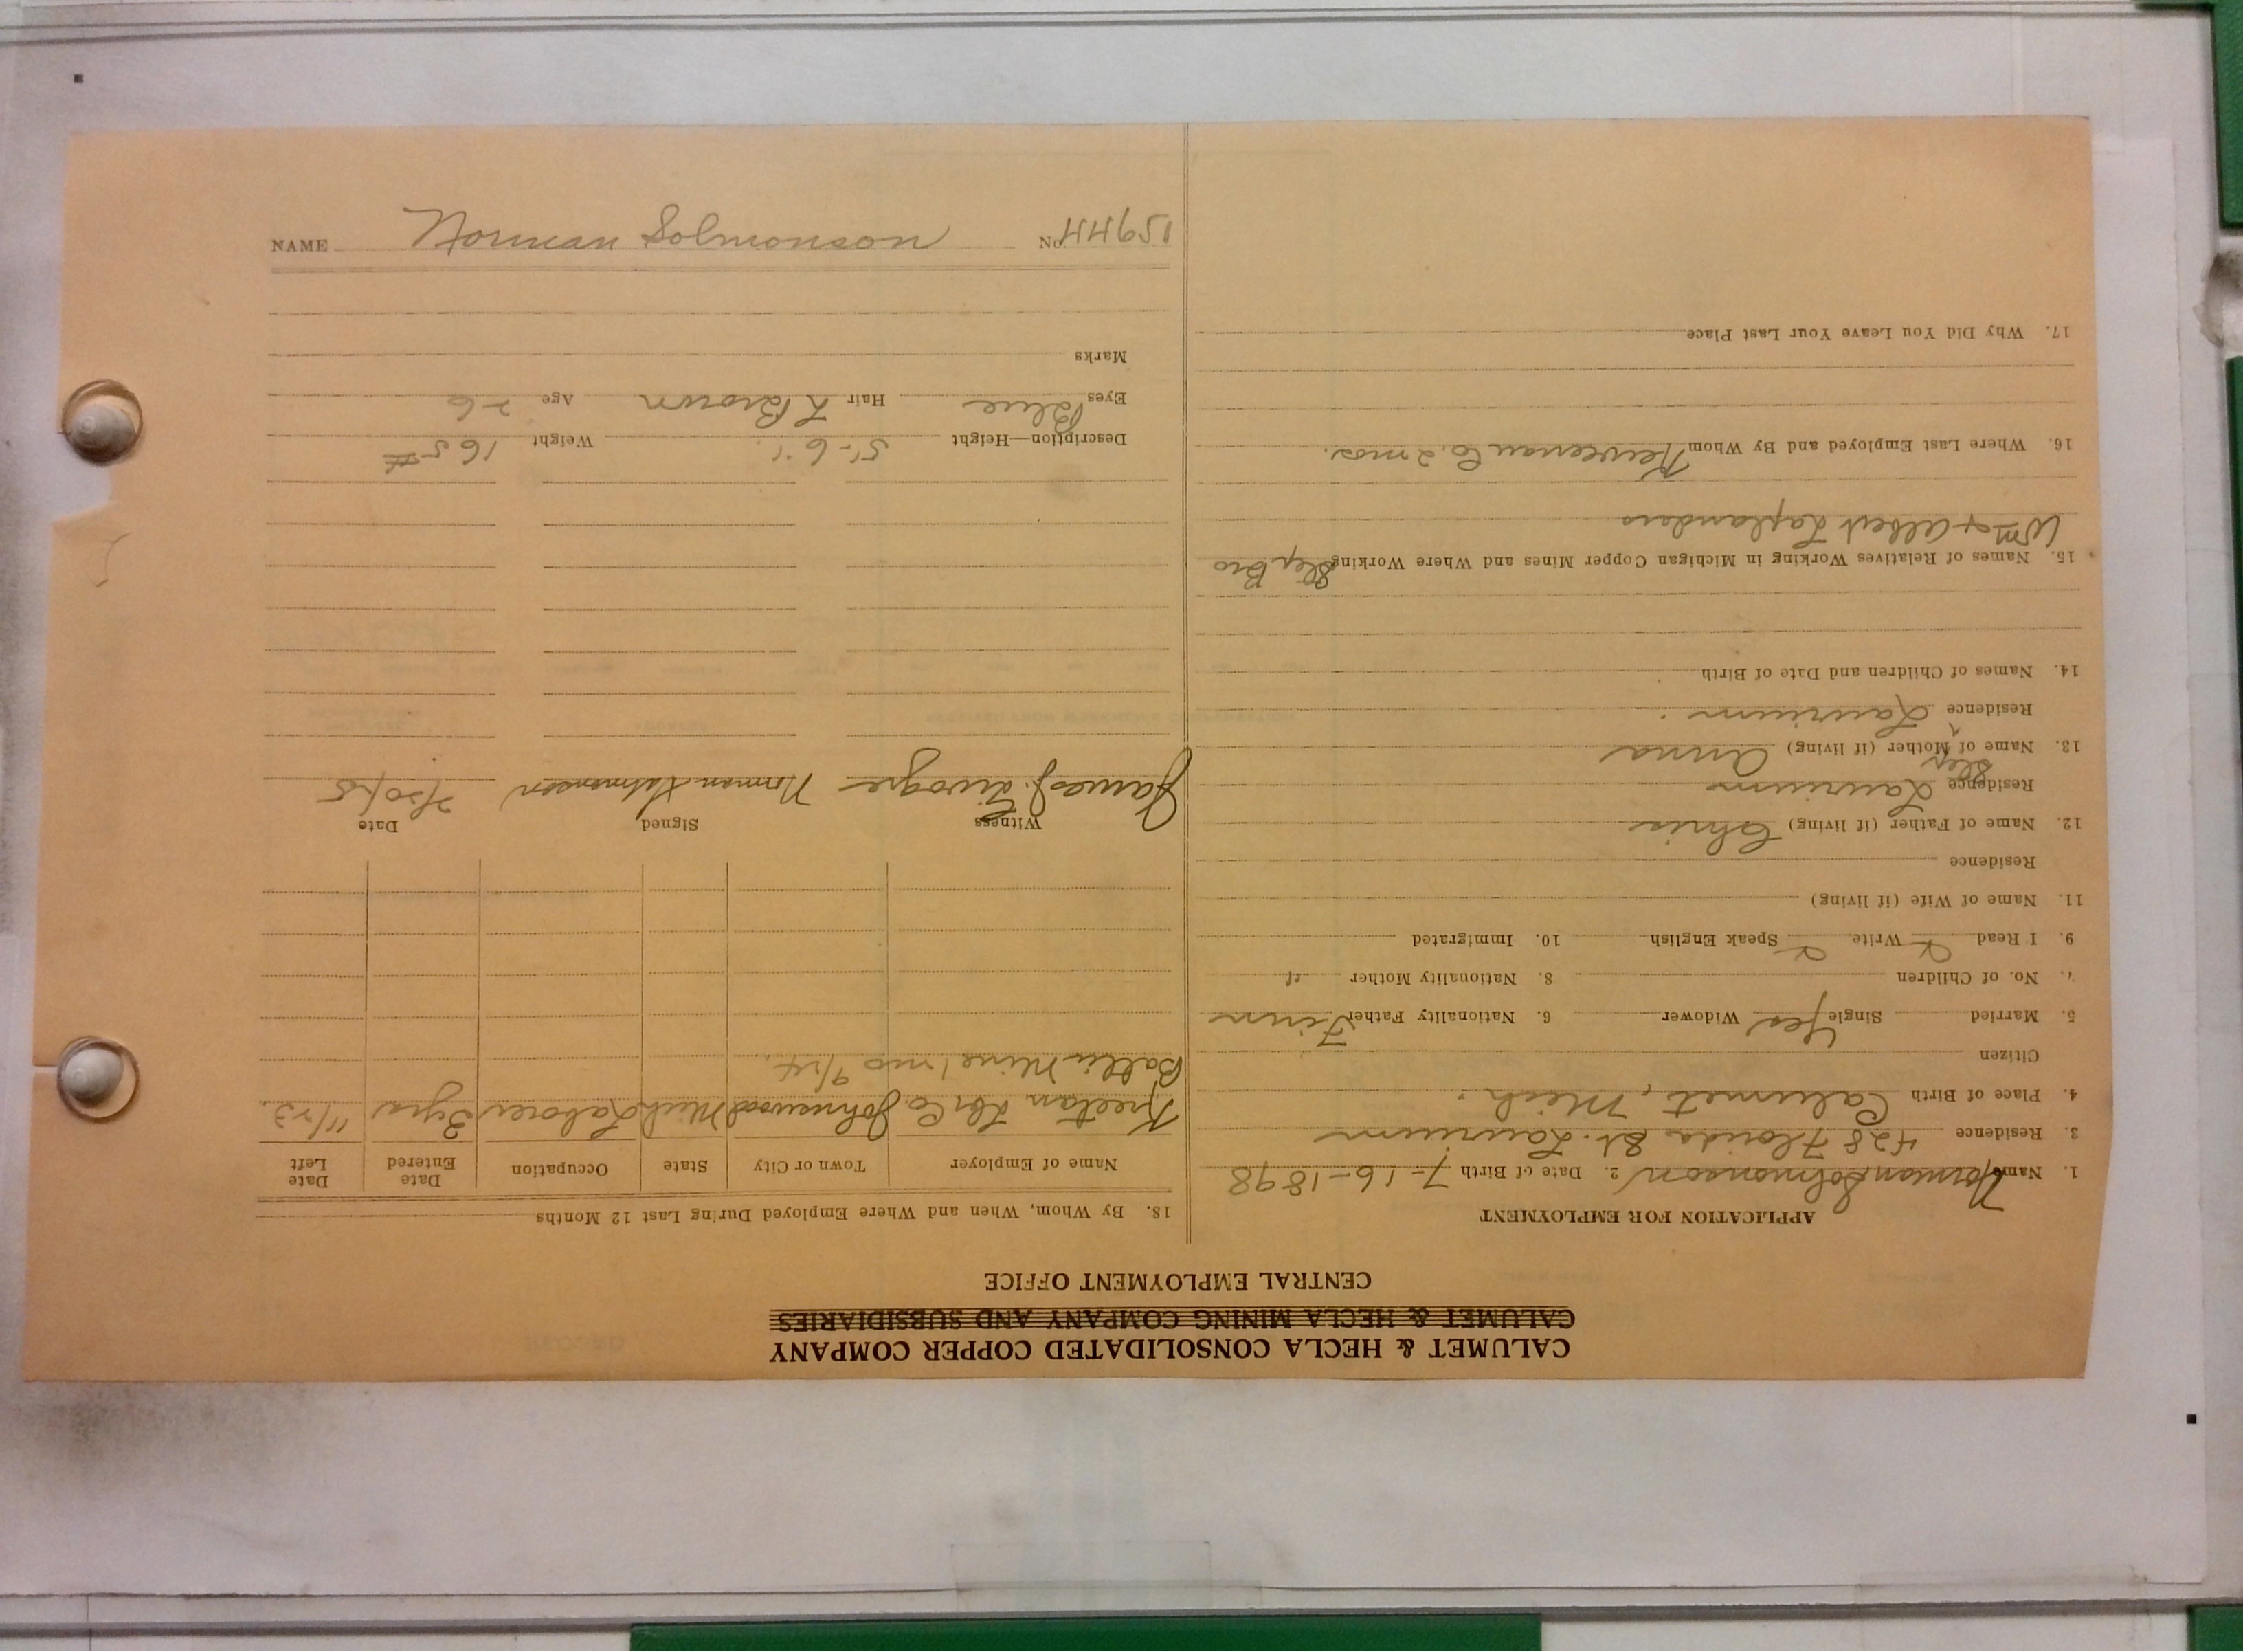 CALUMET & HECLA CONSOLIDATED COPPER COMPANY
CALUMET & HECLA MINING COMPANY AND SUBSIDIARIES
CENTRAL EMPLOYMENT OFFICE
APPLICATION FOR EMPLOYMENT
1. Name Norman Solmonson 2. Date of Birth 7-16-1898
3. Residence 428 Florida St. Laurium
4. Place of Birth Calumet, Mich.
Citizen
5. Married Single Yes Widower 6. Nationality Father Finn
7. No. of Children 8. Nationality Mother "
9. I Read Write Speak English 10. Immigrated
11. Name of Wife (if living)
Residence
12. Name of Father (if living) Chris
Residence Laurium
13. Name of Step Mother (if living) Anna
Residence Laurium
14. Names of Children and Date of Birth
15. Names of Relatives Working in Michigan Copper Mines and Where Working Step Bro
Wm + Albert Laplanders
16. Where Last Employed and By Whom Keweenaw Co. 2 mos.
17. Why Did You Leave Your Last Place
18. By Whom, When and Where Employed During Last 12 Months
Name of Employer Town or City State Occupation Date Entered Date Left
Lbr Co. Johnswood Mich Laborer 3 yrs 11/23.
Baltic Mine 1 mo 9/24.
Witness Signed Date
James J. Norman Solmonson 2/20/25
Description—Height 5'-6" Weight 165#
Eyes Blue Hair L Brown Age 26
Marks
NAME Norman Solmonson No. 15944